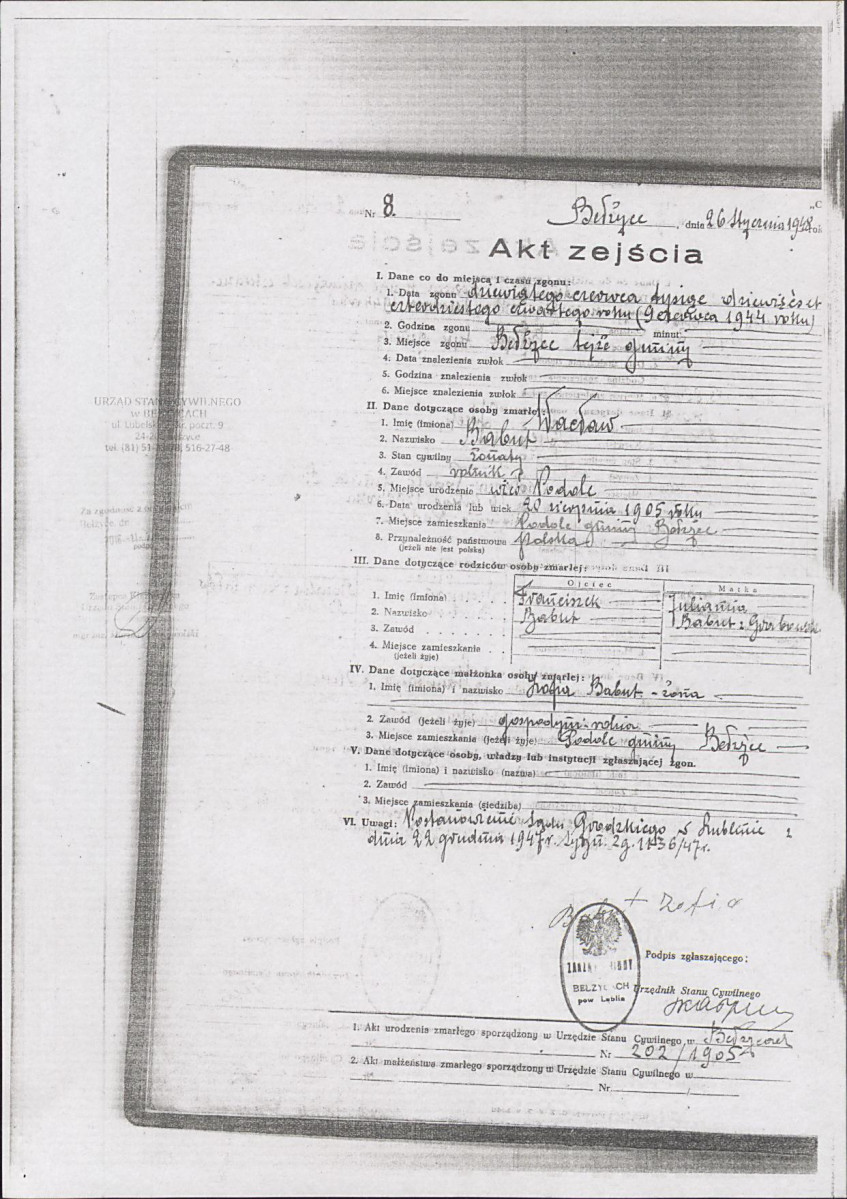 Nr 8. Bełżyce, dnia 26 stycznia 1948 rok
Akt zejścia
I. Dane co do miejsca i czasu zgonu:
1. Data zgonu dziewiątego czerwca tysiąc dziewięćset
czterdziestego czwartego roku (9 czerwca 1944 roku)
2. Godzina zgonu minut
3. Miejsce zgonu Bełżyce tejże gminy
4. Data znalezienia zwłok
5. Godzina znalezienia zwłok
6. Miejsce znalezienia zwłok
II. Dane dotyczące osoby zmarłej:
1. Imię (imiona) Wacław
2. Nazwisko Babut
3. Stan cywilny żonaty
4. Zawód rolnik
5. Miejsce urodzenia wieś Podole
6. Data urodzenia lub wiek 20 sierpnia 1905 roku
7. Miejsce zamieszkania Podole gminy Bełżyce
8. Przynależność państwowa Polska
(jeżeli nie jest polska)
III. Dane dotyczące rodziców osoby zmarłej:
Ojciec Matka
1. Imię (imiona) Franciszek Julianna
2. Nazwisko Babut Babut z
3. Zawód
4. Miejsce zamieszkania
(jeżeli żyje)
IV. Dane dotyczące małżonka osoby zmarłej:
1. Imię (imiona) i nazwisko Zofia Babut - żona
2. Zawód (jeżeli żyje) gospodyni
3. Miejsce zamieszkania (jeżeli żyje) Podole gminy Bełżyce
V. Dane dotyczące osoby, władzy lub instytucji zgłaszającej zgon.
1. Imię (imiona) i nazwisko (nazwa)
2. Zawód
3. Miejsce zamieszkania (siedziba)
VI. Uwagi: Postanowienie Sądu Grodzkiego w Lublinie z
dnia 22 grudnia 1947 r. Zg. 1136/47r.
Zofia
Podpis zgłaszającego:
Urzędnik Stanu Cywilnego
pow Lublin
1. Akt urodzenia zmarłego sporządzony w Urzędzie Stanu Cywilnego w Bełżycach
Nr 202/1905
2. Akt małżeństwa zmarłego sporządzony w Urzędzie Stanu Cywilnego w
Nr
URZĄD STANU CYWILNEGO